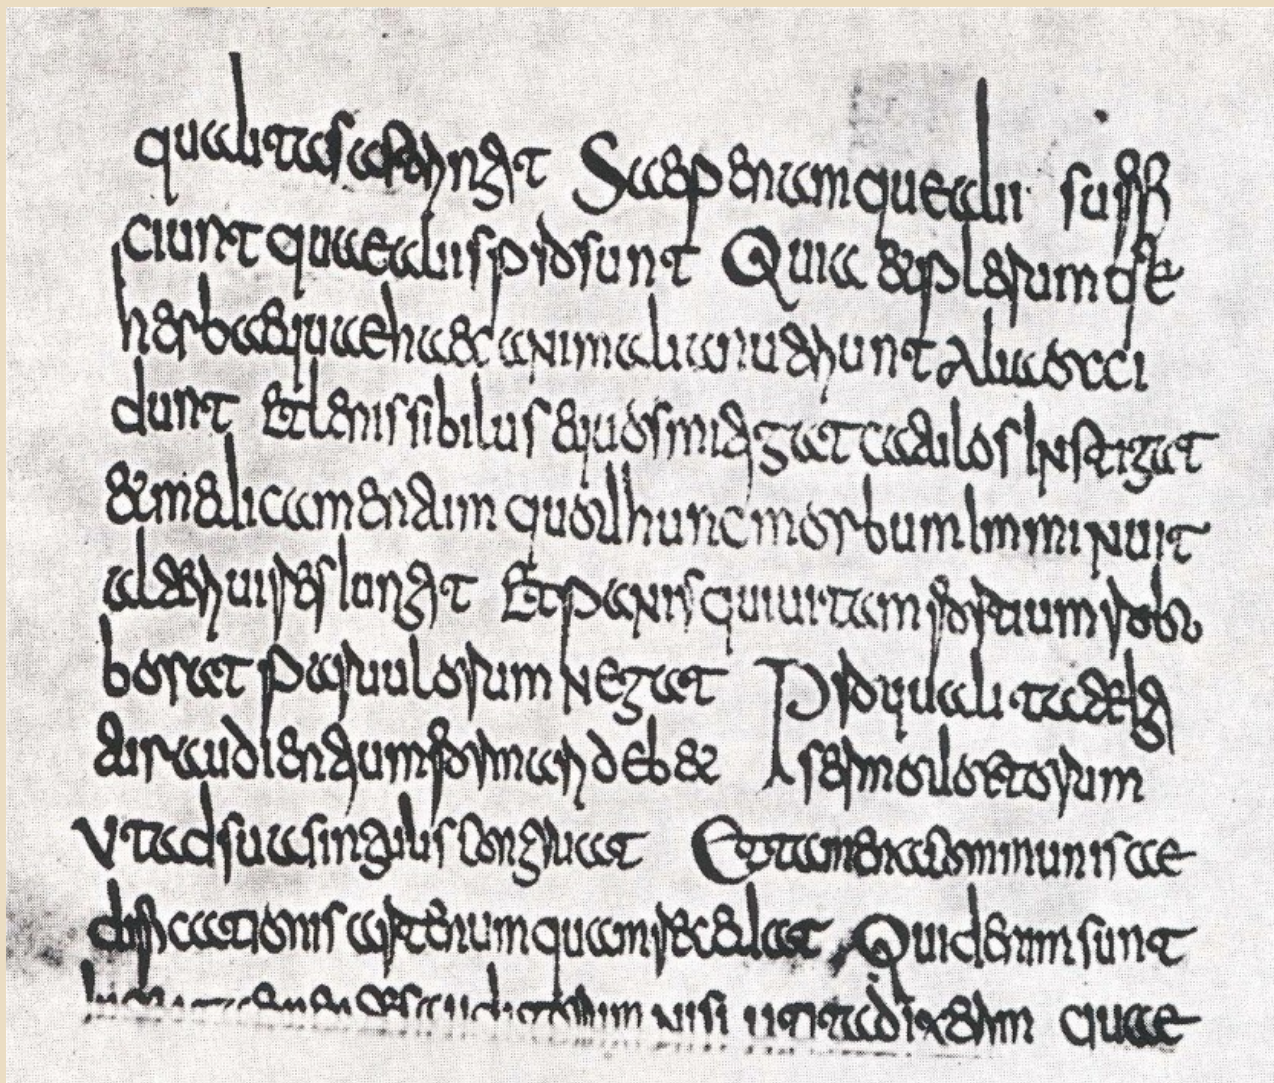 qualitas astringit Saepe namque alii suffi
ciunt quae aliis prosunt Quia et plerumque
herbae quae haec animalia nutriunt Alia occi
dunt Et lenis sibilus equos mitigat catulos Instigat
et medicamentum quod hunc morbum Imminuit
alteri uires Iungit Et panis qui uitam fortium robo
borat paruulorum necat Pro qualitate Ig
itur audientium formari debet sermo doctorum
Ut ad sua singulis congruat Et tamen a communis ae
dificationis arte numquam recedat Quid enim sunt
auditorum nisi ut ita dixerim quae